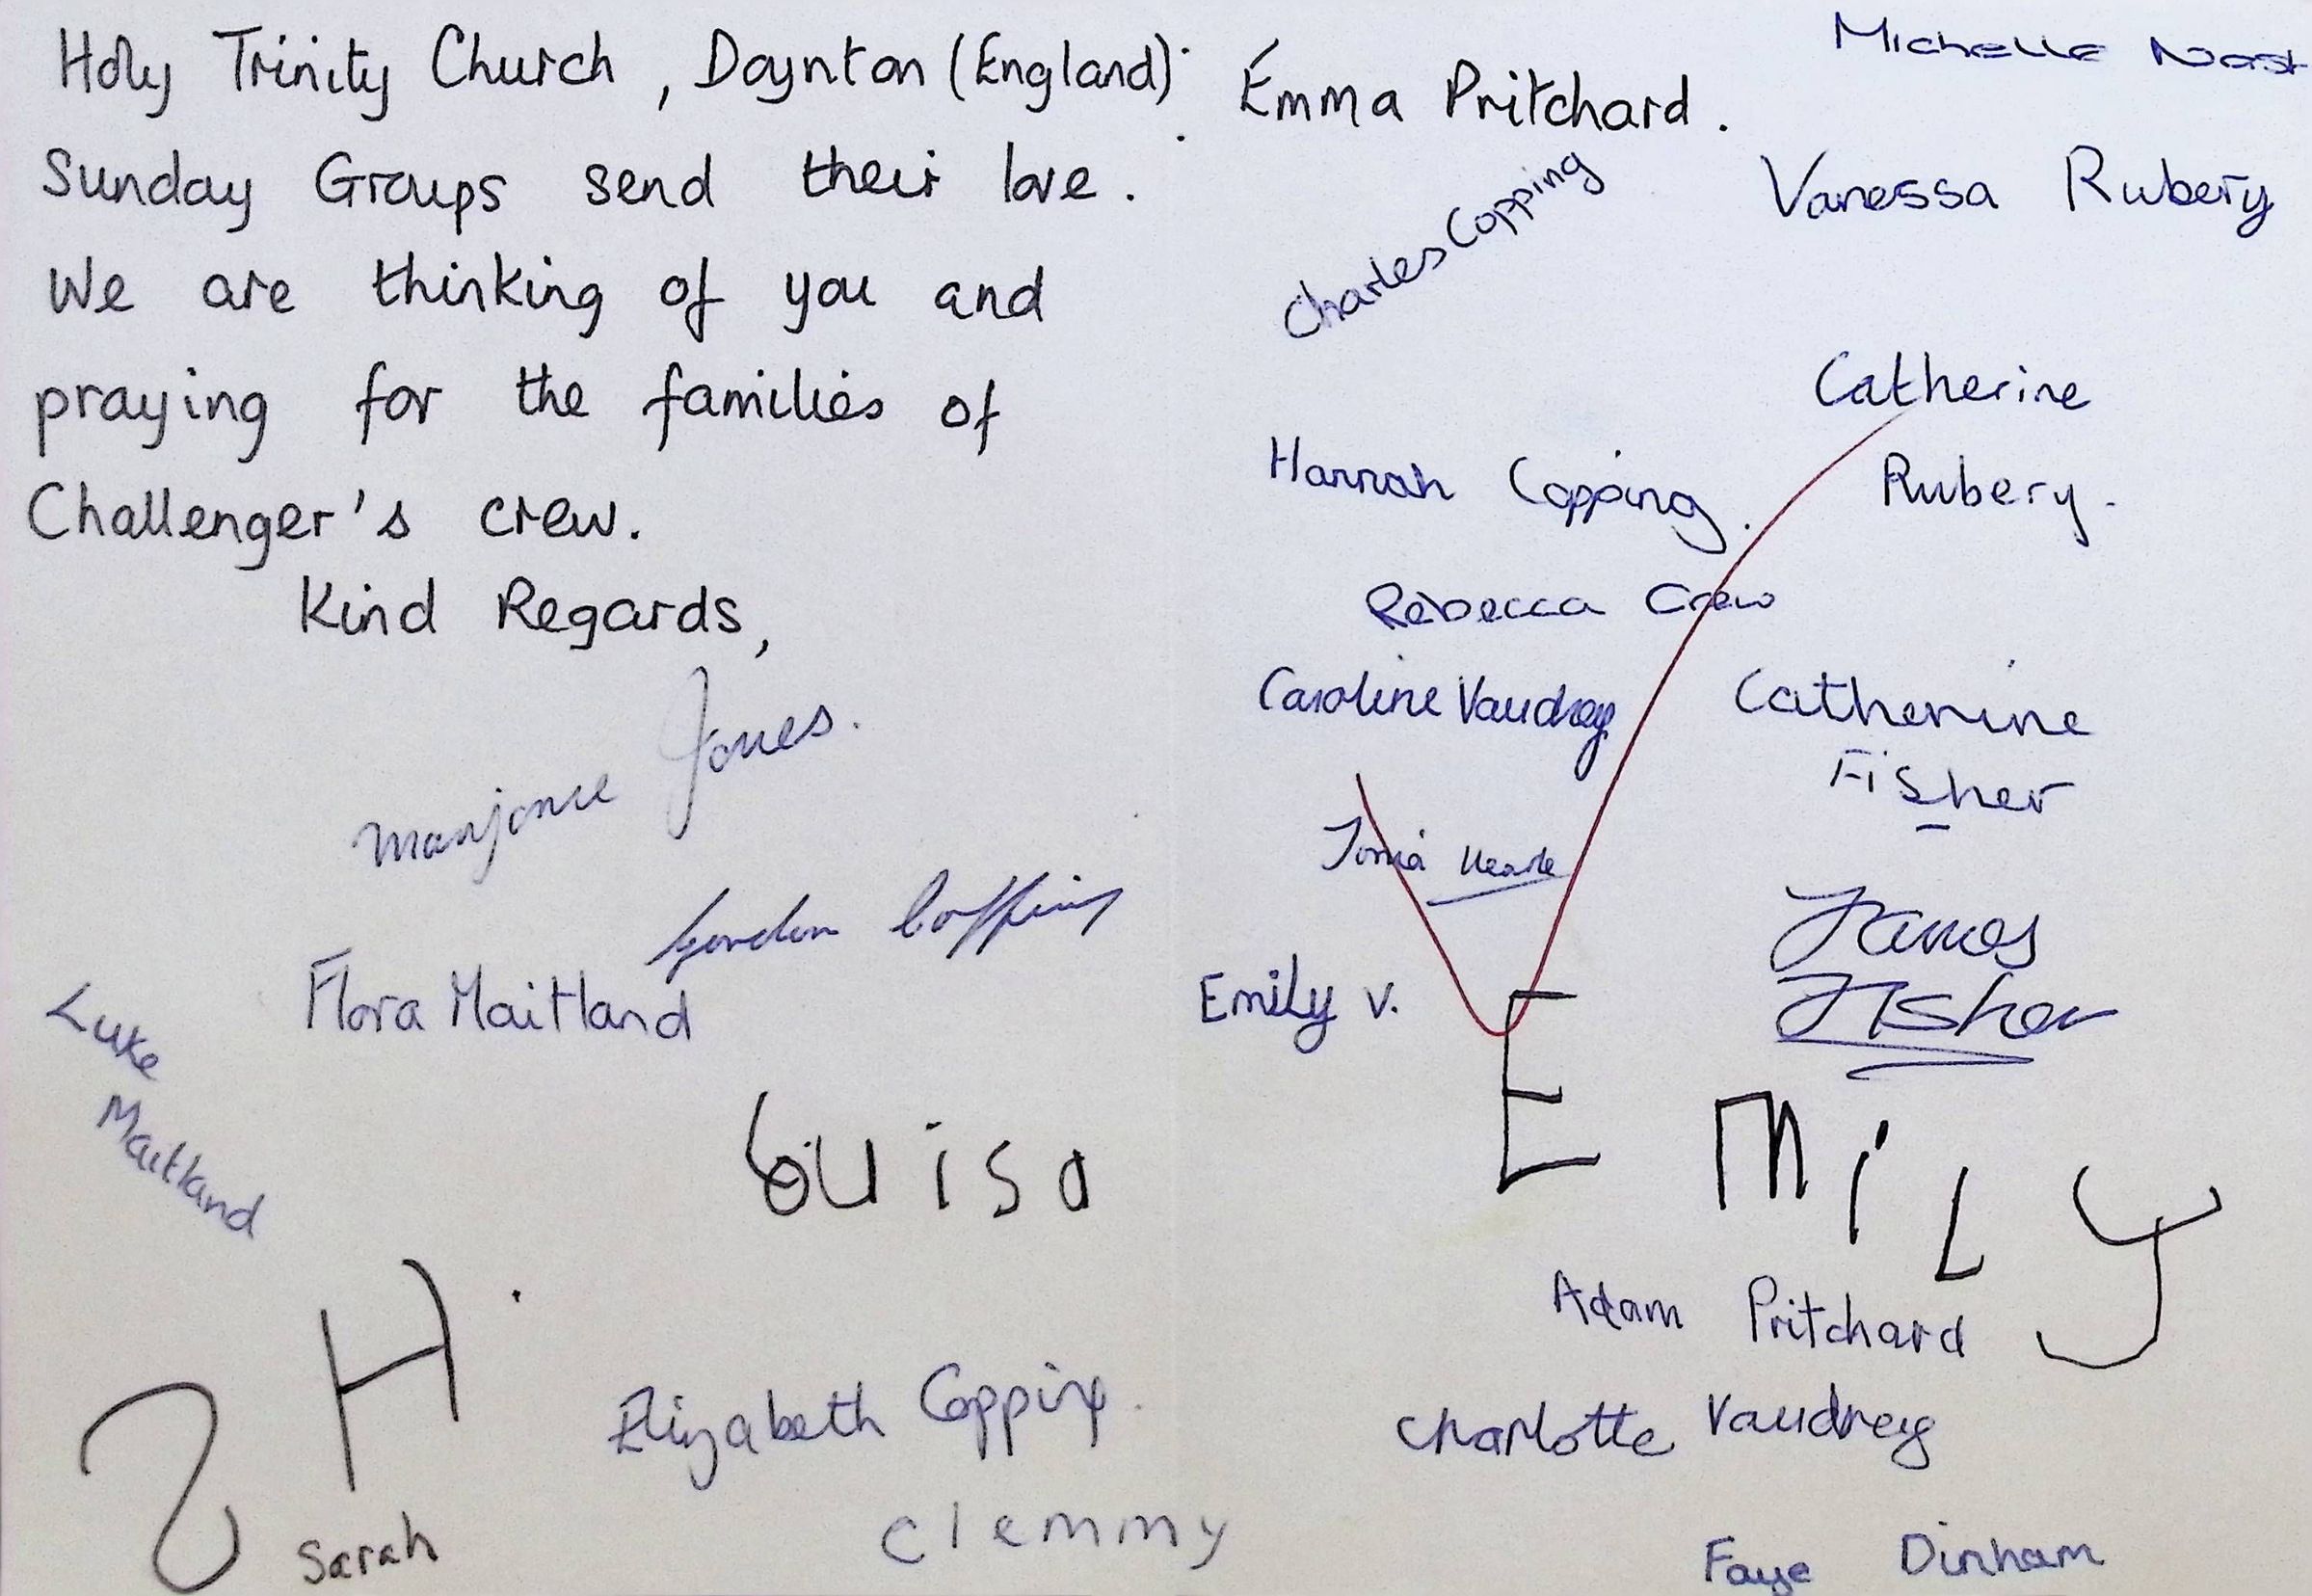 Holy Trinity Church, Doynton (England)
Sunday Groups send their love.
We are thinking of you and
praying for the families of
Challenger's crew.
Kind Regards,
Marjorie Jones.
Gordon Copping
Flora Maitland
Luke
Maitland
Louisa
S H
Sarah
Elizabeth Copping.
Clemmy
Emma Pritchard.
Michelle
Vanessa Rubery
Charles Copping
Catherine
Rubery.
Hannah Copping.
Rebecca Crew
Caroline Vaudrey
Catherine
Fisher
Tonia
James
Fisher
Emily V.
EmiLy
Adam Pritchard
Charlotte Vaudrey
Faye Dinham